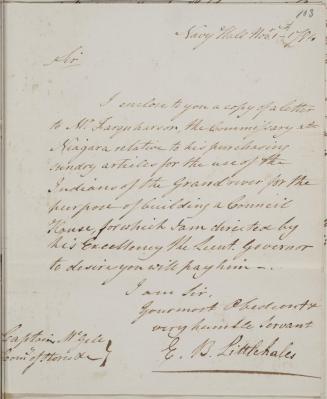 113
Navy Hall Nov. 1st 1794
Sir
I enclose to you a copy of a letter
to Mr. Farquharson, the Commissary at
Niagara relative to his purchasing
sundry articles for the use of the
Indians of the Grand river for the
purpose of building a Council
House, for which I am directed by
his Excellency the Lieut. Governor
to desire you will pay him —.
I am Sir.
Your most Obedient &
very humble Servant
E. B. Littlehales
Captain McGill
Comy. of Stores &c